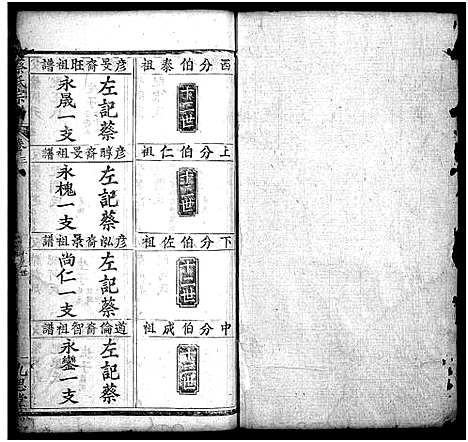 西分伯泰祖
十二世
彦旻齋旺祖譜
左記蔡
永晟一支
上分伯仁祖
十二世
彦醇齋旻祖譜
左記蔡
永槐一支
下分伯佐祖
十二世
彦泓齋景祖譜
左記蔡
尚仁一支
中分伯成祖
十二世
道倫齋智祖譜
左記蔡
永鑾一支
蔡氏宗譜
九思堂